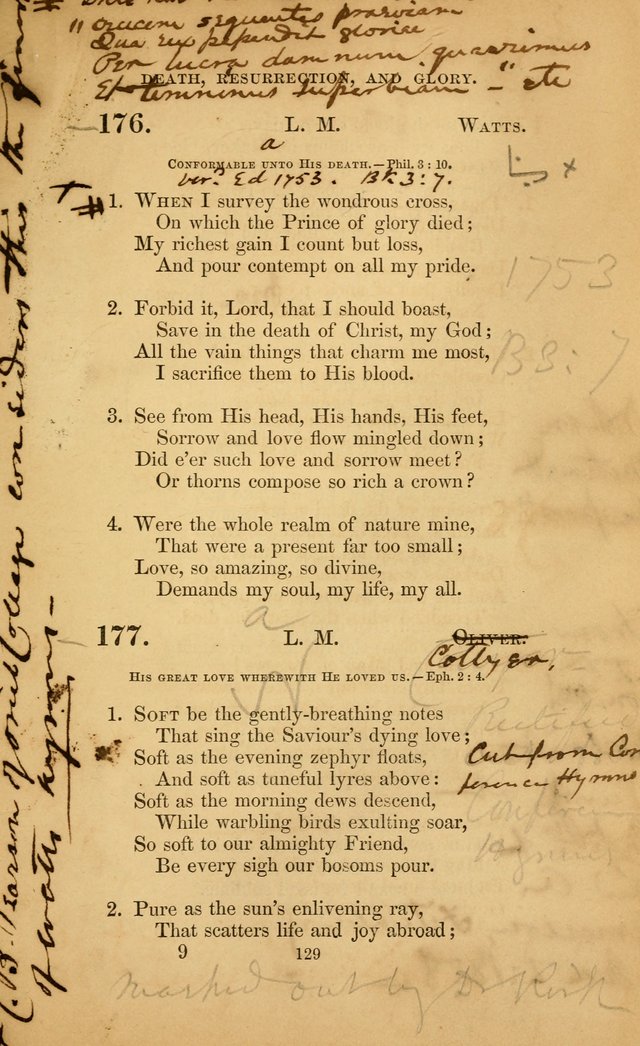 "crucem sequentes praeviam
Qua rex pependit gloriae
Per lucra damnum quaerimus
DEATH, RESURRECTION, AND GLORY.
Et superbiam – " etc
176. L. M. WATTS.
a
CONFORMABLE UNTO HIS DEATH.—Phil. 3 : 10.
ver. Ed 1753. Bk 3 : 7.
1. WHEN I survey the wondrous cross,
On which the Prince of glory died;
My richest gain I count but loss,
And pour contempt on all my pride.
1753
2. Forbid it, Lord, that I should boast,
Save in the death of Christ, my God;
B 3 : 7
All the vain things that charm me most,
I sacrifice them to His blood.
3. See from His head, His hands, His feet,
Sorrow and love flow mingled down;
Did e'er such love and sorrow meet?
Or thorns compose so rich a crown?
4. Were the whole realm of nature mine,
That were a present far too small;
Love, so amazing, so divine,
Demands my soul, my life, my all.
a
177. L. M. OLIVER.
Collyer,
HIS GREAT LOVE WHEREWITH HE LOVED US.—Eph. 2 : 4.
1. SOFT be the gently-breathing notes
That sing the Saviour's dying love;
Soft as the evening zephyr floats,
Cut from Con
And soft as tuneful lyres above:
ference Hymns
Soft as the morning dews descend,
While warbling birds exulting soar,
So soft to our almighty Friend,
Hymns
Be every sigh our bosoms pour.
2. Pure as the sun's enlivening ray,
That scatters life and joy abroad;
9 129
marked out by Dr Kirk
C. B. Pearson of Oriel College considers this the finest
of Watts hymns –